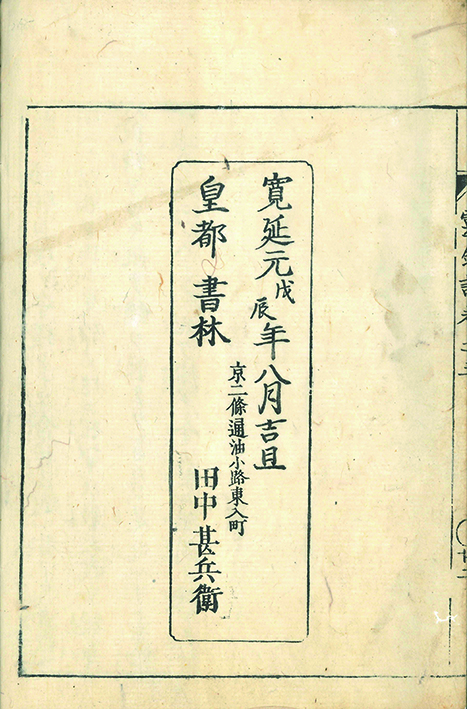 寛延元戊辰年八月吉旦
京二條通油小路東入町
皇都 書林 田中甚兵衛